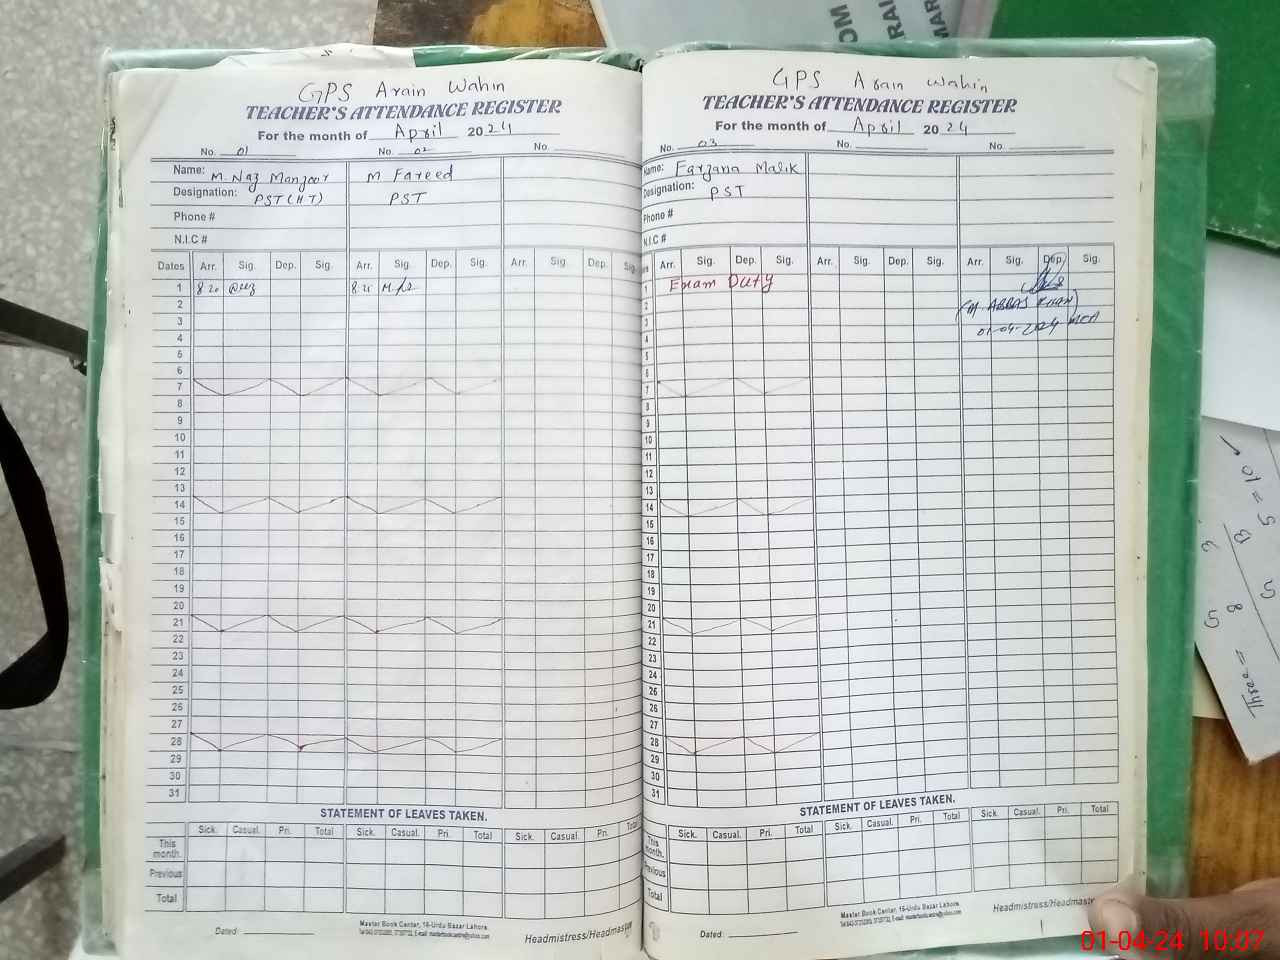 GPS Arain Wahin
TEACHER'S ATTENDANCE REGISTER
For the month of April 2024
No. 01 No. 02 No.
Name: M. Naz Manzoor M Fareed
Designation: PST (HT) PST
Phone #
N.I.C #
Dates Arr. Sig. Dep. Sig. Arr. Sig. Dep. Sig. Arr. Sig. Dep. Sig.
1 8 20 8 21
2
3
4
5
6
7
8
9
10
11
12
13
14
15
16
17
18
19
20
21
22
23
24
25
26
27
28
29
30
31
STATEMENT OF LEAVES TAKEN.
Sick. Casual. Pri. Total Sick. Casual. Pri. Total Sick. Casual. Pri. Total
This month.
Previous
Total
Master Book Center, 16-Urdu Bazar Lahore.
Dated: Headmistress/Headmaster
GPS Arain Wahin
TEACHER'S ATTENDANCE REGISTER
For the month of April 2024
No. 03 No. No.
Name: Farzana Malik
Designation: PST
Phone #
N.I.C #
Arr. Sig. Dep. Sig. Arr. Sig. Dep. Sig. Arr. Sig. Dep. Sig.
1 Exam Duty
2 (M. ABBAS KHAN)
3 01-04-2024 MEA
4
5
6
7
8
9
10
11
12
13
14
15
16
17
18
19
20
21
22
23
24
25
26
27
28
29
30
31
STATEMENT OF LEAVES TAKEN.
Sick. Casual. Pri. Total Sick. Casual. Pri. Total Sick. Casual. Pri. Total
This month.
Previous
Total
Master Book Center, 16-Urdu Bazar Lahore.
Dated: Headmistress/Headmast
OM
RAI
MAR
5 = 10
B
8
Three =
01-04-24 10:07